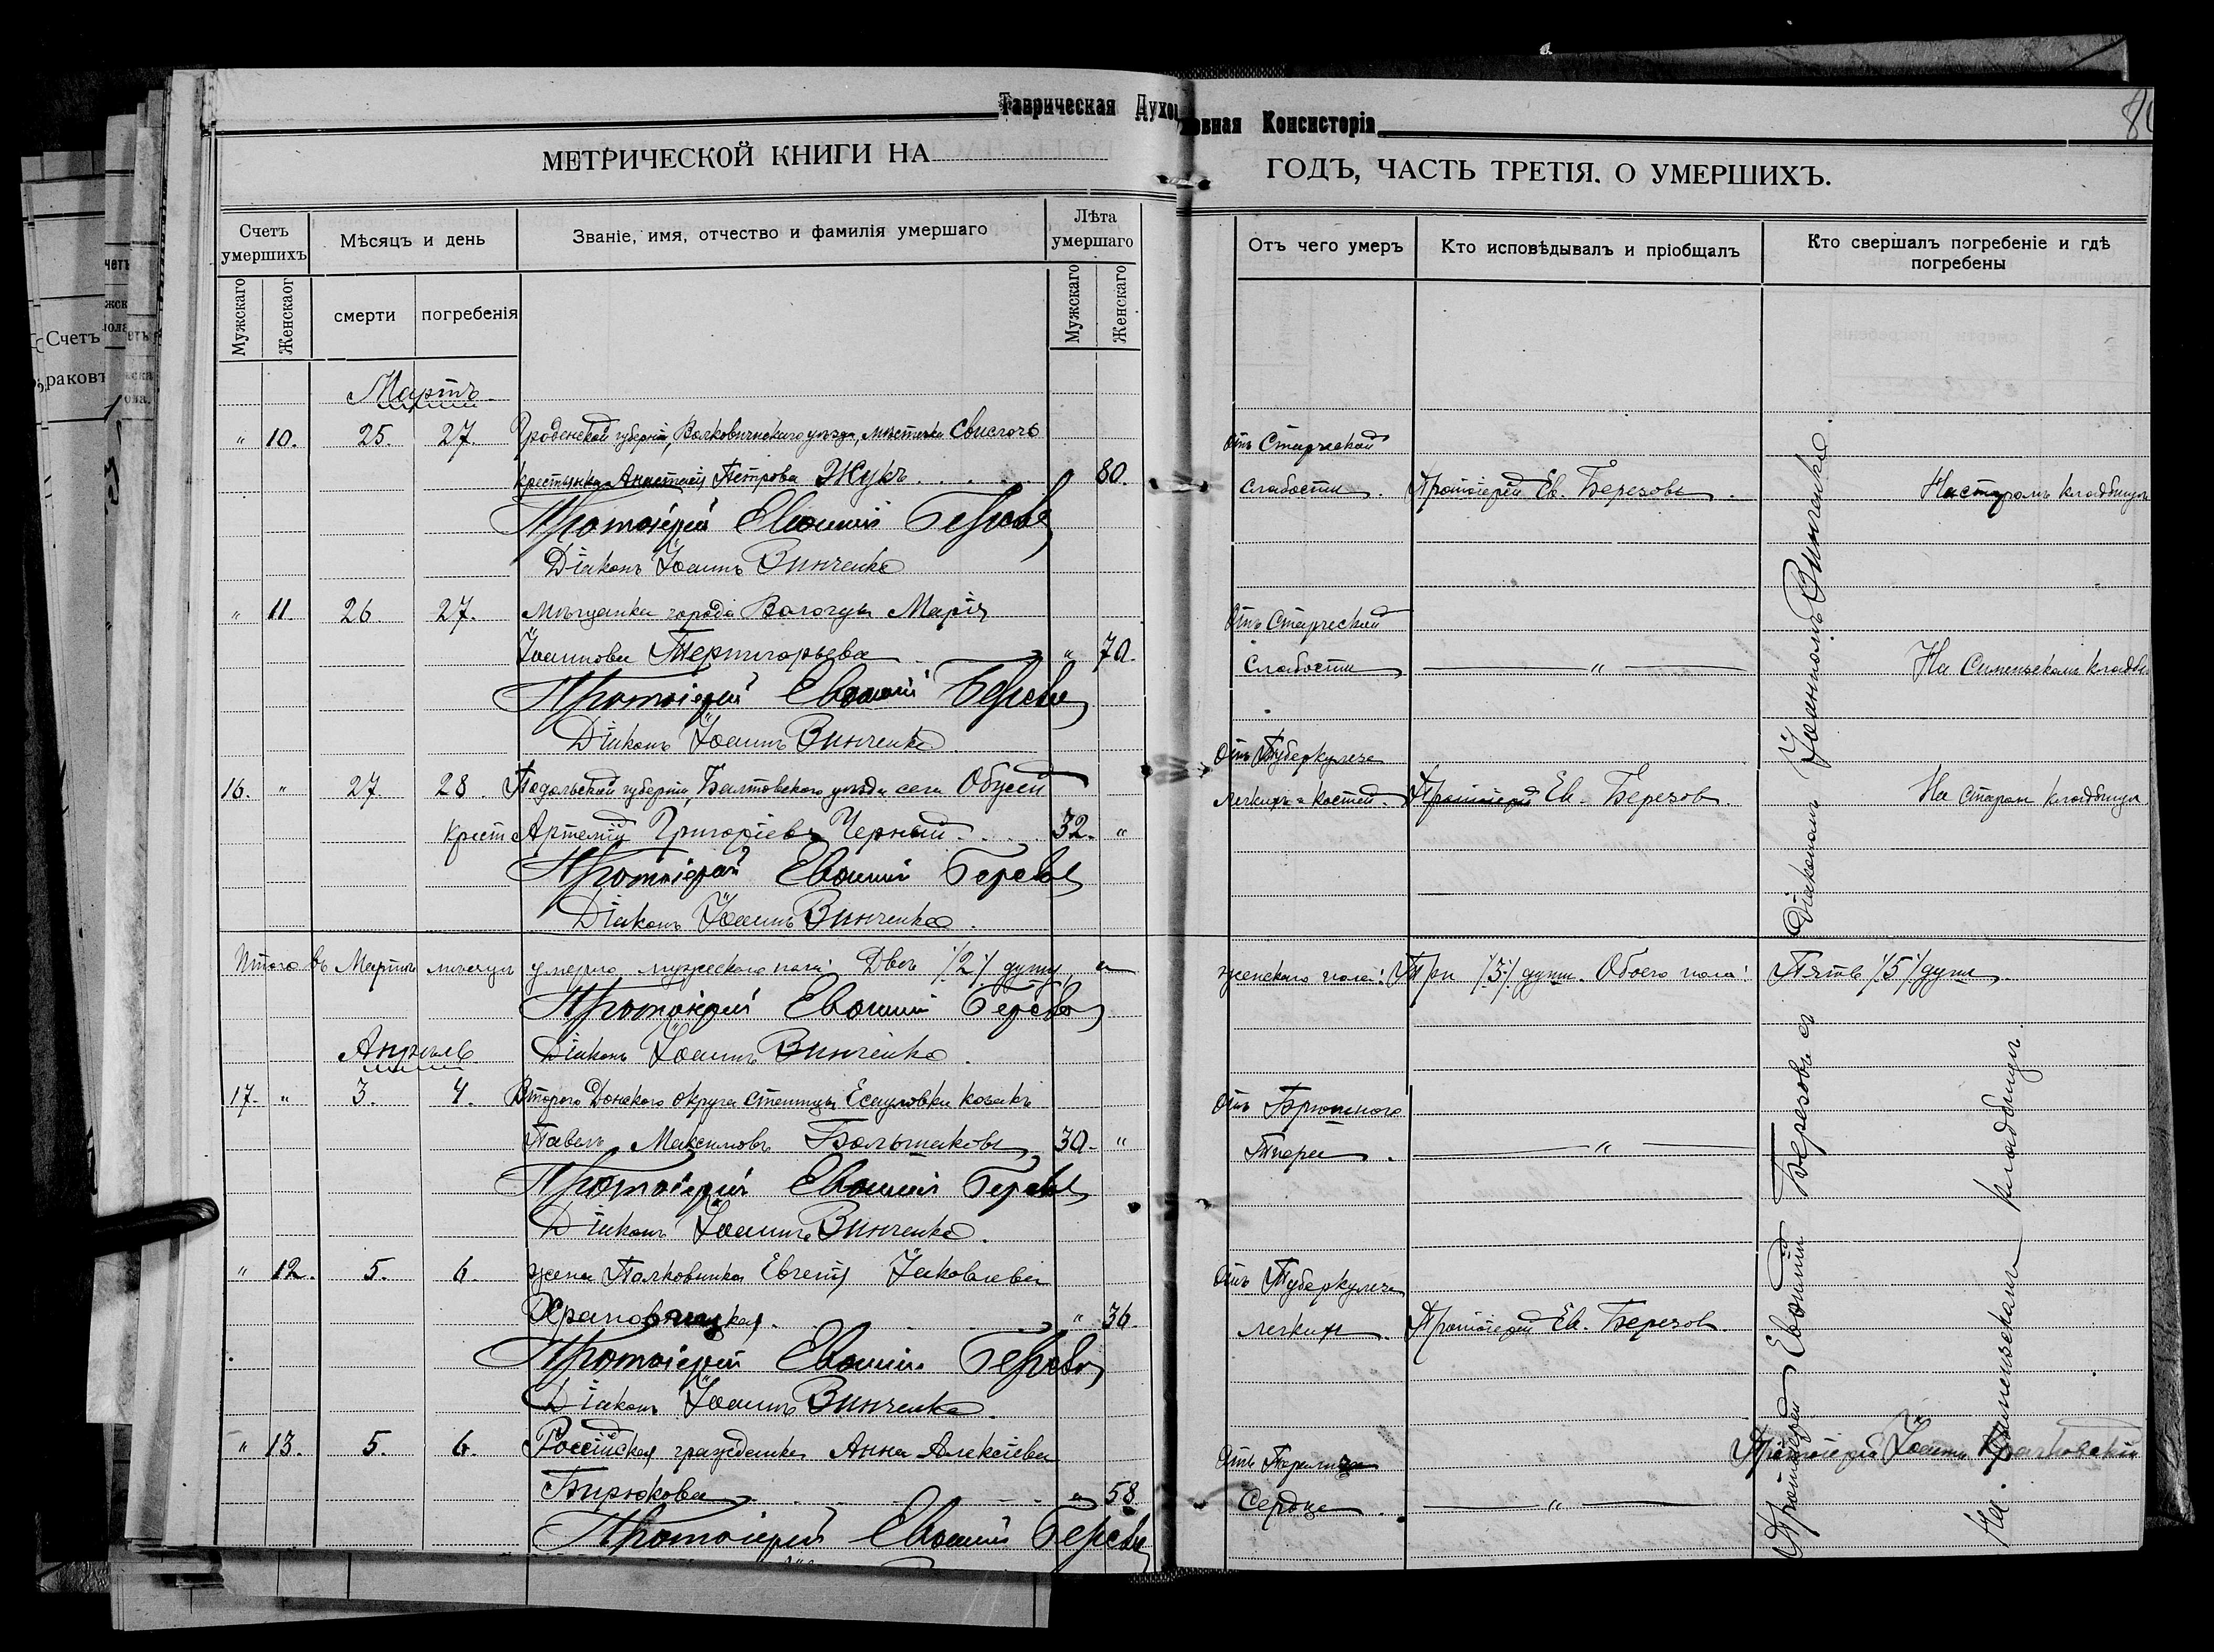 Таврическая Духовная Консисторія
МЕТРИЧЕСКОЙ КНИГИ НА ГОДЪ, ЧАСТЬ ТРЕТІЯ. О УМЕРШИХЪ.
Счетъ умершихъ
Мѣсяцъ и день
Званіе, имя, отчество и фамилія умершаго
Лѣта умершаго
Отъ чего умеръ
Кто исповѣдывалъ и пріобщалъ
Кто свершалъ погребеніе и гдѣ погребены
Мужскаго
Женскаог
смерти
погребенія
Мужскаго
Женскаго
Мартъ
" 10. 25. 27. Гроденской губерніи, Волковичискаго уѣзда, мѣстечка Свислочь Отъ Старческой
крестьянка Анастасія Петрова Жукъ 80. слабости. Протоіерей Ев. Березовъ. На старомъ кладбищѣ
Протоіерей Евѳимій Березовъ
Діаконъ Іоаннъ Винченко
" 11. 26. 27. Мѣщанка города Вологды Марія Отъ Старческой
Іоаннова Терпигорьева " 70. слабости " На кладби
Протоіерей Евѳимій Березовъ
Діаконъ Іоаннъ Винченко.
Отъ Туберкулеза
16. " 27. 28 Подольской губерніи, Балтовскаго уѣзда села легкихъ и костей. Протоіерей Ев. Березов. На Старом кладбищѣ
крест Артемій Григоріевъ Черный 32. "
Протоіерей Евѳимій Березовъ
Діаконъ Іоаннъ Винченко.
Итого въ Мартѣ мѣсяцѣ умерло мужескаго пола: Двѣ /2/ душу, а женскаго пола: Три /3/ души. Обоего пола: Пять /5/ душ.
Протоіерей Евѳимій Березовъ
Апрѣль Діаконъ Іоаннъ Винченко.
17. " 3. 4. Второго Донского округа станицы Есауловки козакъ Отъ Брюшного
Павелъ Максимовъ Большаковъ 30. " Тифа. "
Протоіерей Евѳимій Березовъ
Діаконъ Іоаннъ Винченко.
" 12. 5. 6. жена Полковника Евгенія Іаковлева Отъ Туберкулеза
" 36. легкихъ. Протоіерей Ев. Березов.
Протоіерей Евѳимій Березовъ
Діаконъ Іоаннъ Винченко.
" 13. 5. 6. Россійская гражданка Анна Алексіева Отъ Паралича
Бирюкова " 58 Сердца. "
Протоіерей Евѳимій Березовъ
Протоіерей Евѳимій Березовъ съ Діакономъ Іоанномъ Винченко.
На кладбищѣ.
Протоіерей Іоаннъ
Счетъ
раковъ